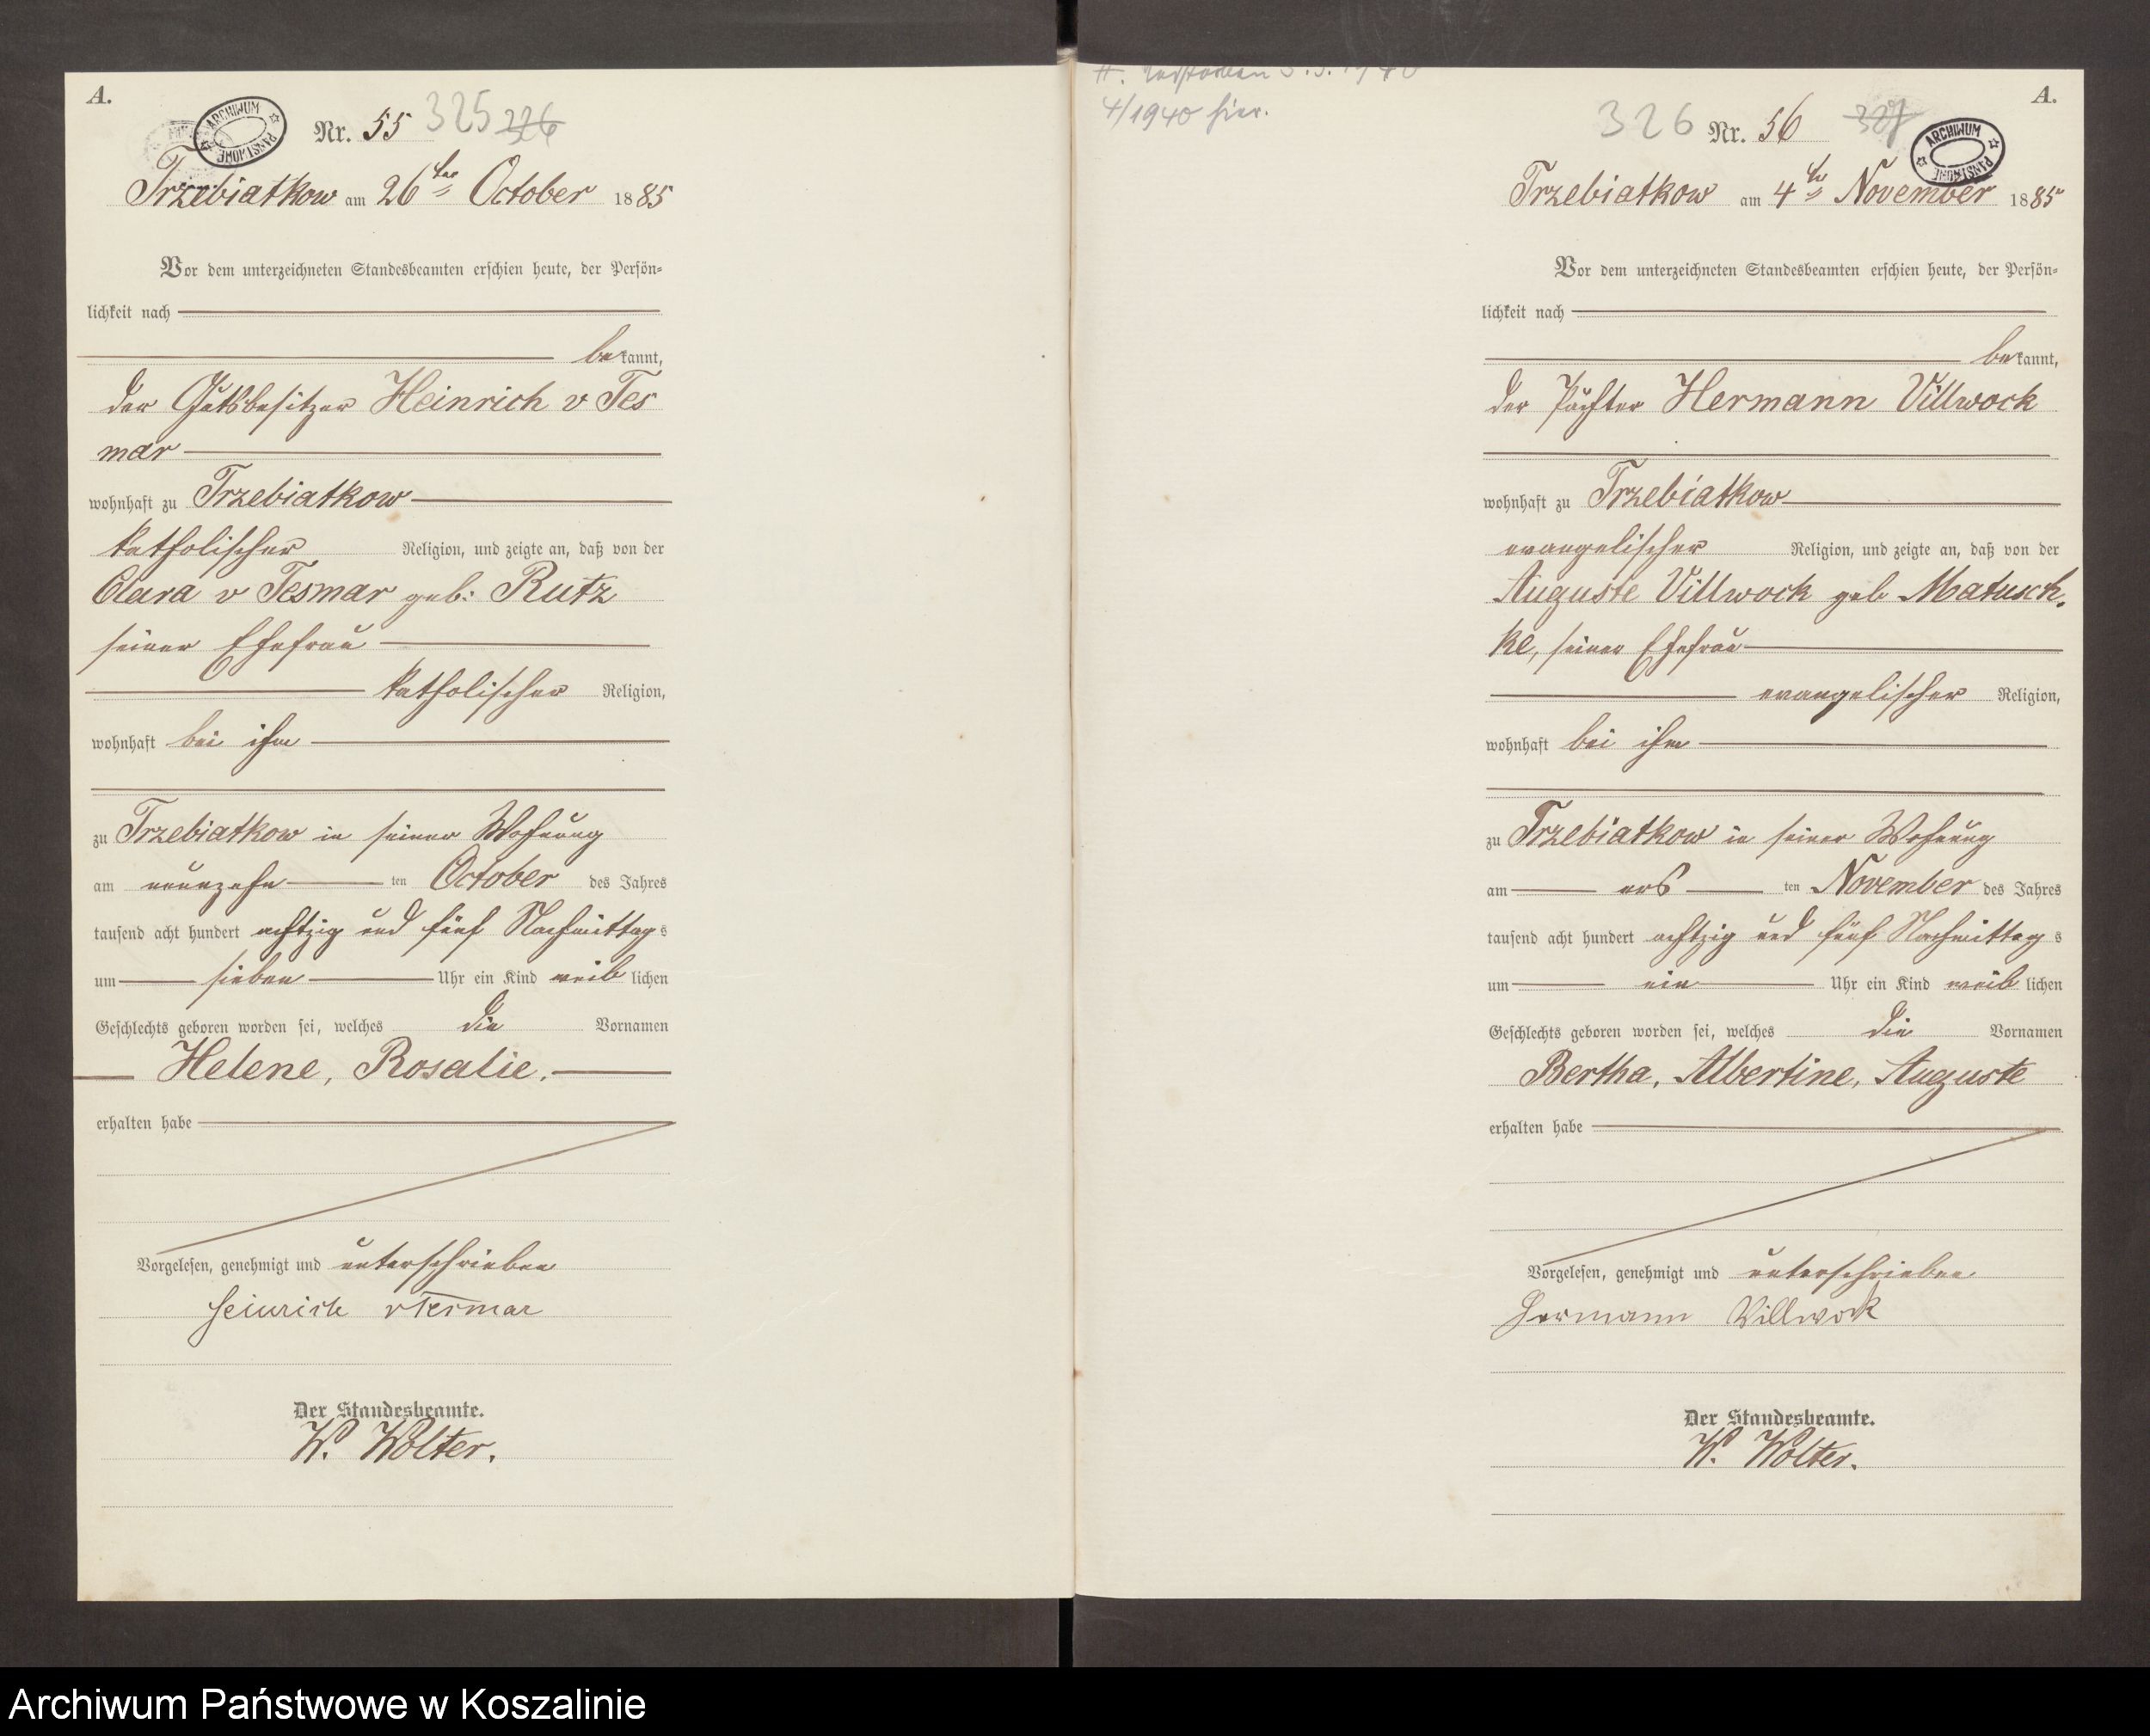 A.
ARCHIWUM PAŃSTWOWE
Nr. 55 325 326
Trzebiatkow am 26ten October 1885
Vor dem unterzeichneten Standesbeamten erschien heute, der Persön-
lichkeit nach
bekannt,
der Gutsbesitzer Heinrich v Tes
mar
wohnhaft zu Trzebiatkow
katholischer Religion, und zeigte an, daß von der
Clara v Tesmar geb: Rutz
seiner Ehefrau
katholischer Religion,
wohnhaft bei ihm
zu Trzebiatkow in seiner Wohnung
am neunzehn ten October des Jahres
tausend acht hundert achtzig und fünf Nachmittags
um sieben Uhr ein Kind weiblichen
Geschlechts geboren worden sei, welches die Vornamen
Helene, Rosalie.
erhalten habe
Vorgelesen, genehmigt und unterschrieben
Heinrich vTesmar
Der Standesbeamte.
W. Wolter.
4/1940 hier.
A.
326 Nr. 56 327
ARCHIWUM PAŃSTWOWE
Trzebiatkow am 4ten November 1885
Vor dem unterzeichneten Standesbeamten erschien heute, der Persön-
lichkeit nach
bekannt,
der Pächter Hermann Villwock
wohnhaft zu Trzebiatkow
evangelischer Religion, und zeigte an, daß von der
Auguste Villwock geb Matusch-
ke, seiner Ehefrau
evangelischer Religion,
wohnhaft bei ihm
zu Trzebiatkow in seiner Wohnung
am ers ten November des Jahres
tausend acht hundert achtzig und fünf Nachmittags
um ein Uhr ein Kind weiblichen
Geschlechts geboren worden sei, welches die Vornamen
Bertha, Albertine, Auguste
erhalten habe
Vorgelesen, genehmigt und unterschrieben
Hermann Villwock
Der Standesbeamte.
W. Wolter.
Archiwum Państwowe w Koszalinie